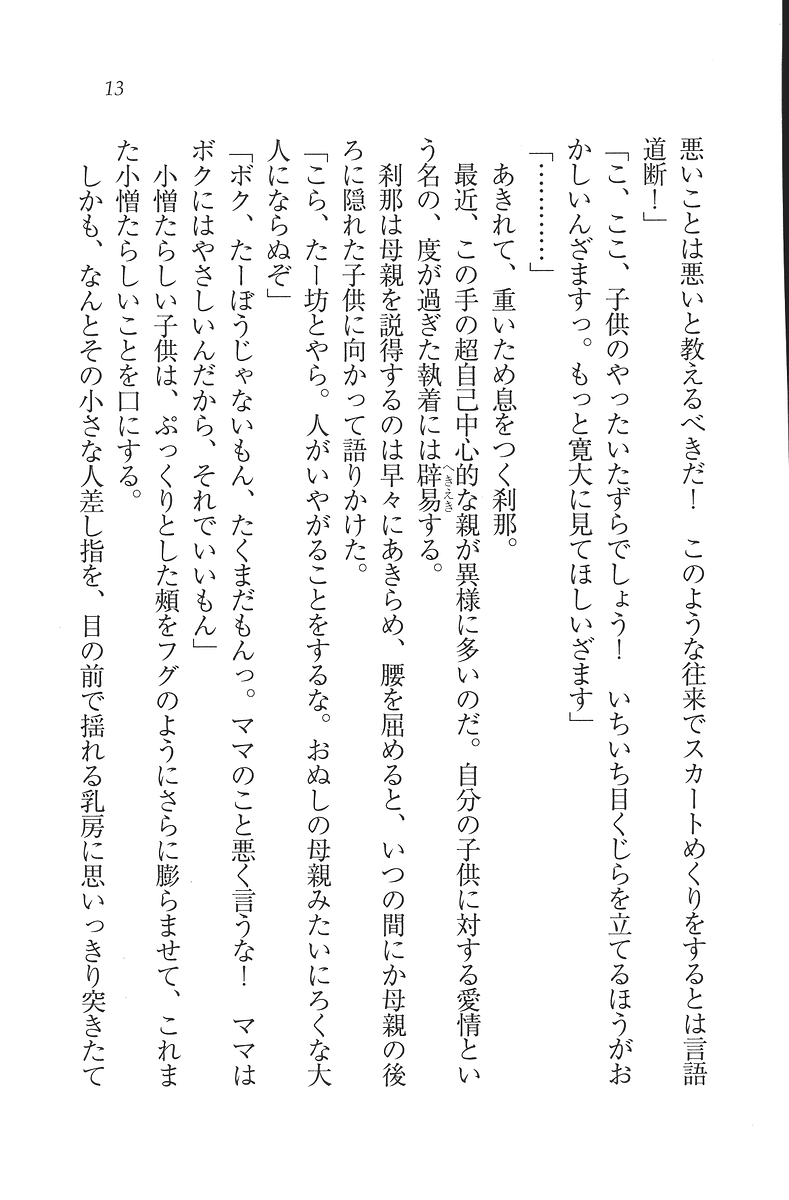 13
悪いことは悪いと教えるべきだ！　このような往来でスカートめくりをするとは言語
道断！」
「こ、ここ、子供のやったいたずらでしょう！　いちいち目くじらを立てるほうがお
かしいんざますっ。もっと寛大に見てほしいざます」
「…………」
あきれて、重いため息をつく刹那。
最近、この手の超自己中心的な親が異様に多いのだ。自分の子供に対する愛情とい
う名の、度が過ぎた執着には辟易する。
へきえき
刹那は母親を説得するのは早々にあきらめ、腰を屈めると、いつの間にか母親の後
ろに隠れた子供に向かって語りかけた。
「こら、たー坊とやら。人がいやがることをするな。おぬしの母親みたいにろくな大
人にならぬぞ」
「ボク、たーぼうじゃないもん、たくまだもんっ。ママのこと悪く言うな！　ママは
ボクにはやさしいんだから、それでいいもん」
小憎たらしい子供は、ぷっくりとした頬をフグのようにさらに膨らませて、これま
た小憎たらしいことを口にする。
しかも、なんとその小さな人差し指を、目の前で揺れる乳房に思いっきり突きたて